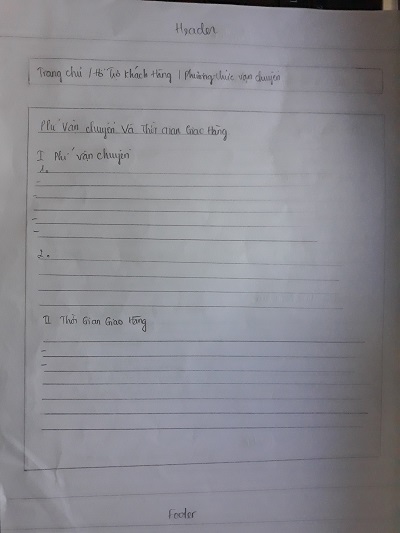 Header
Trang chủ / Hỗ Trợ Khách Hàng / Phương thức vận chuyển
Phí Vận chuyển Và Thời Gian Giao Hàng
I Phí vận chuyển
1.
2.
II Thời Gian Giao Hàng
Footer